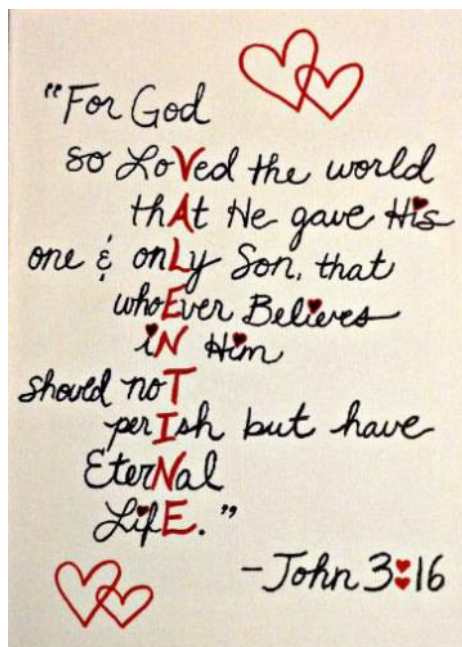 "For God
so LoVed the world
thAt He gave His
one & onLy Son, that
whoEver Believes
iN Him
should noT
perIsh but have
EterNal
LifE."
-John 3:16